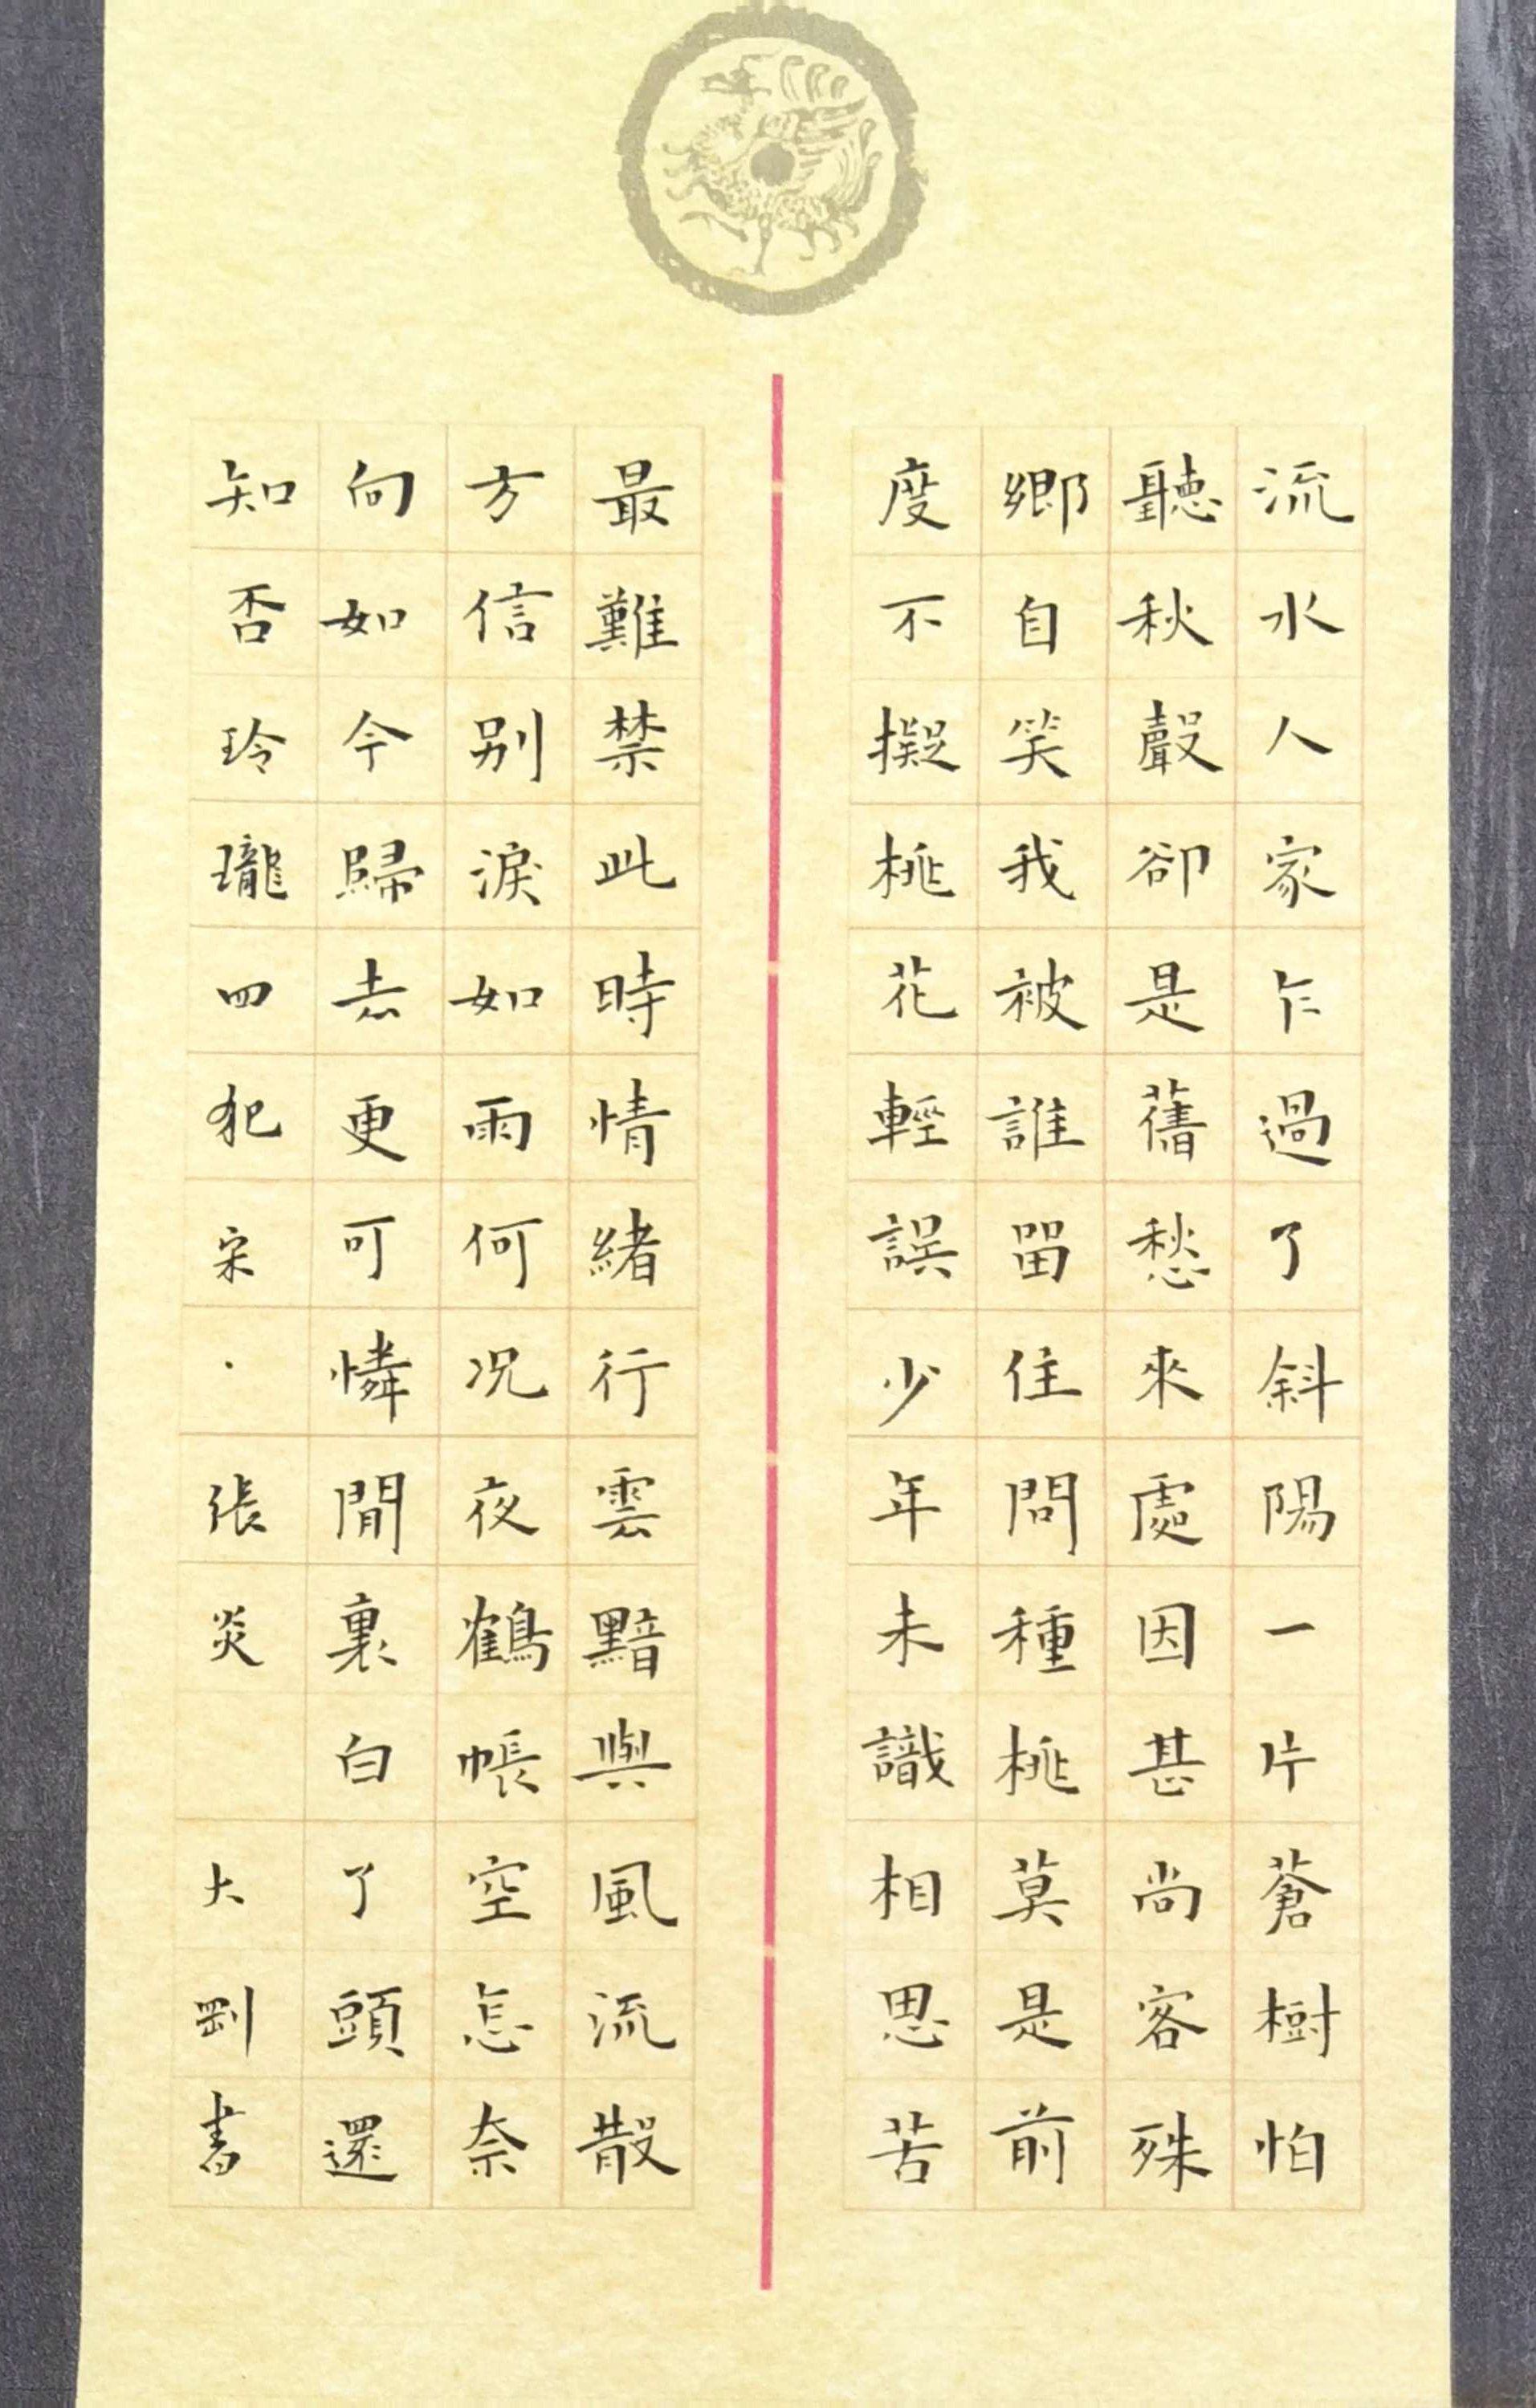 流水人家乍過了斜陽一片蒼樹怕
聽秋聲卻是舊愁來處因甚尚客殊
鄉自笑我被誰留住問種桃莫是前
度不擬桃花輕誤少年未識相思苦
最難禁此時情緒行雲黯與風流散
方信別淚如雨何況夜鶴帳空怎奈
向如今歸去更可憐閒裏白了頭還
知否玲瓏四犯宋·張炎 大剛書